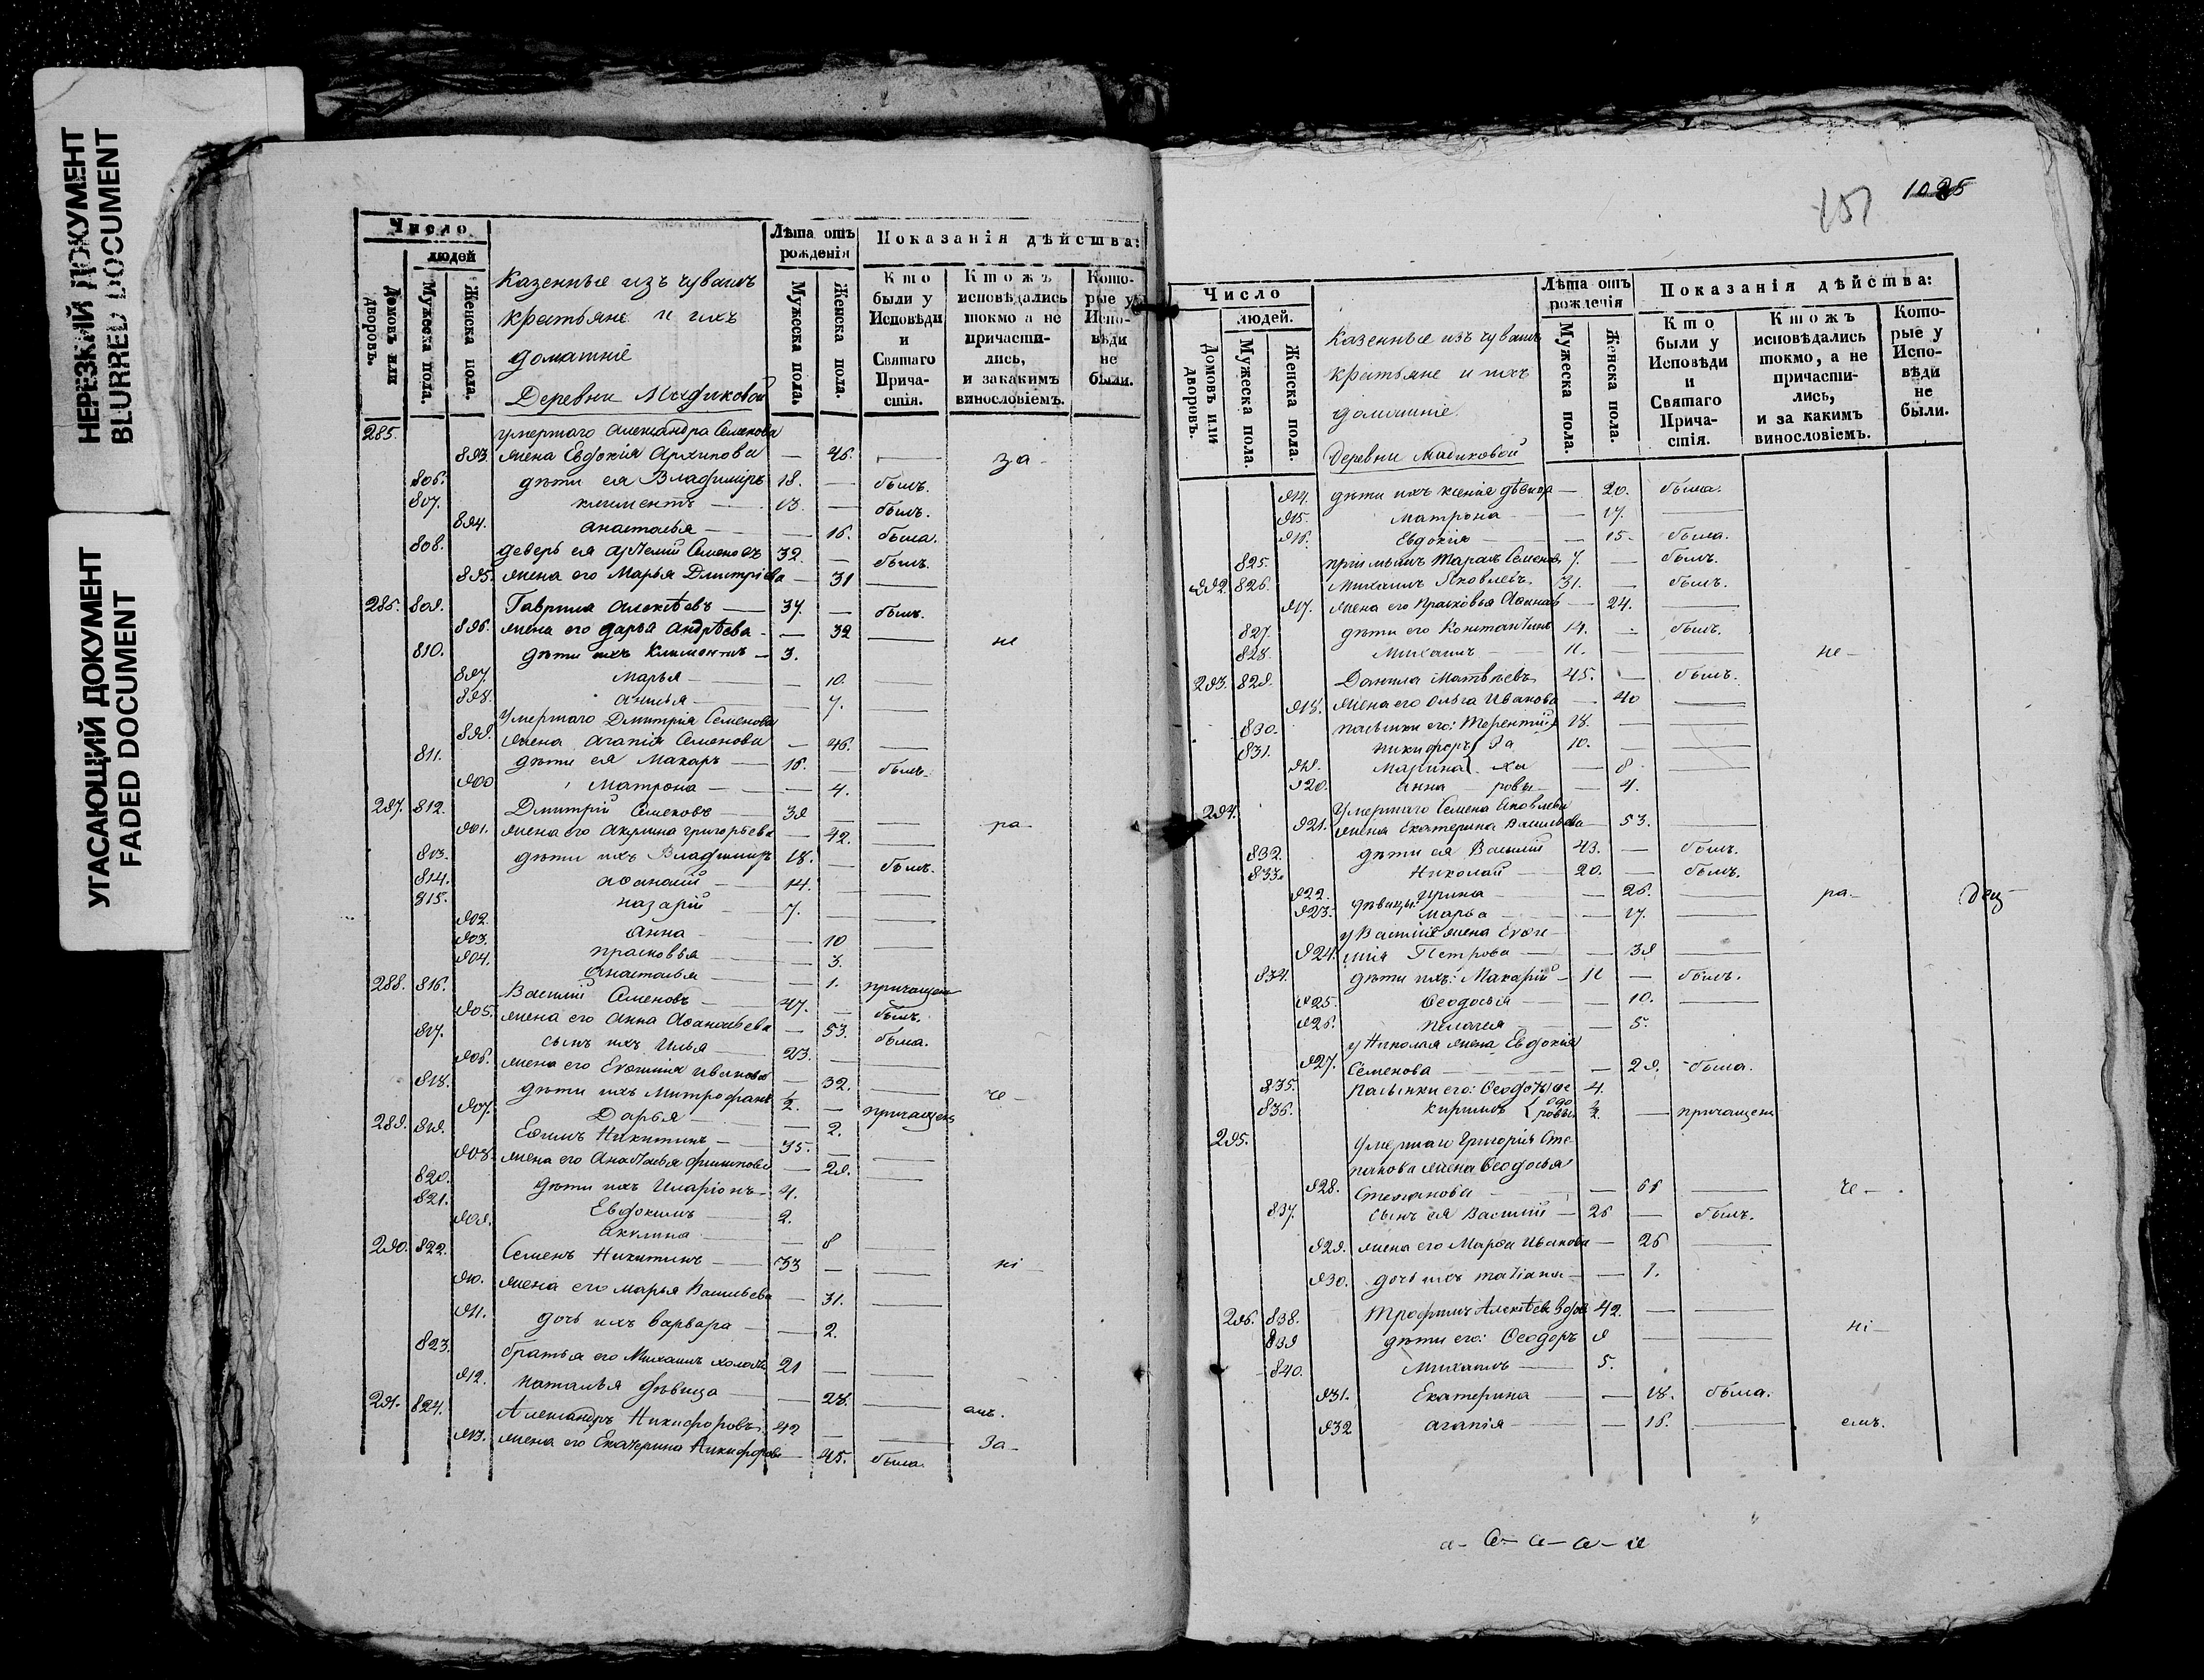 НЕРЕЗКИЙ ДОКУМЕНТ
BLURRED DOCUMENT
УГАСАЮЩИЙ ДОКУМЕНТ
FADED DOCUMENT
Число
людей
Домовъ или дворовъ.
Мужеска пола.
Женска пола.
Казенные изъ чувашъ
крестьяне и ихъ
домашніе
Деревни
Лѣта отъ рожденія
Мужеска пола.
Женска пола.
Показанія дѣйства:
Кто были у Исповѣди и Святаго Причастія.
Ктожъ исповѣдались токмо а не причастились, и закакимъ винословіемъ.
Которые у Исповѣди не были.
285. умершаго Александра Семенова
893. жена Евдокія Архипова — 46. — за-
806. дѣти ея Владиміръ 18. — былъ.
807. климентъ — 13. — былъ.
894. анастасья — — 16. была.
808. деверь ея артемій Семеновъ 32. — былъ.
895. жена его Марья Дмитріева — 31 —
286. 809. Гаврила алексѣевъ — 37. — былъ.
896. жена его дарья андрѣева — — 32 — не
810. дѣти ихъ Климентъ — 3.
897. марья — — 10. —
898. — 7. —
умершаго Дмитрія Семенова
899. жена агапія Семенова — 46. —
811. дѣти ея Макаръ — 16. — былъ.
900 матрона — — 4.
287. 812. Дмитрій Семеновъ — 39 — — ра-
901. жена его акулина григорьева — 42. —
813. дѣти ихъ Владиміръ 18. — былъ.
814. аѳанасій — 14. — —
815. назарій — 7. — —
902. анна — — 10 —
903. прасковья — — 3.
904. анастасья — — 1. причащена
288. 816. Василій Семеновъ — 47. — былъ.
905. жена его анна аѳанасьева — 53. была.
817. сынъ ихъ Илья — 23. — —
906. жена его Евѳимія иванова — 32. — че-
818. дѣти ихъ Митрофанъ ½. — причащенъ
907. Дарья — — 2.
289. 819. Еѳимъ Никитинъ — 35. — —
908. жена его анастасья филипова — 29. —
820. дѣти ихъ Иларіонъ — 4.
821. Евдокимъ — 2.
909. акулина — — 8
290. 822. Семенъ Никитинъ — 33 — — ні-
910. жена его марья Васильева — 31. —
911. дочь ихъ варвара — — 2.
823. братья его Михаилъ 21 — —
912. наталья дѣвица — — 28. — емъ.
291. 824. Александръ Никифоровъ 42 — — За-
913. жена его Екатерина Никифорова — 45. была.
1025
Число
людей.
Домовъ или дворовъ.
Мужеска пола.
Женска пола.
Казенные изъ чувашъ
крестьяне и ихъ
домашніе.
Деревни Мадиковой
Лѣта отъ рожденія
Мужеска пола.
Женска пола.
Показанія дѣйства:
Кто были у Исповѣди и Святаго Причастія.
Ктожъ исповѣдались токмо, а не причастились, и за какимъ винословіемъ.
Которые у Исповѣди не были.
914. дѣти ихъ ксенія дѣвица — 20. была.
915. матрона — — 17. —
916. Евдокія — — 15. была.
825. пріемышъ Тарасъ Семеновъ 7. — былъ.
292. 826. Михаилъ Яковлевъ 31. — былъ.
917. жена его прасковья — 24. —
827. дѣти его Константинъ 14. — былъ.
828. Михаилъ — 11. — — не-
293. 829. Данила Матвѣевъ 45. — былъ.
918. жена его ольга иванова — 40 —
830. пасынки его: Терентій 18. — —
831. никифоръ За 10. — —
919. марина ха — 8. —
920. анна ровы — 4.
294. Умершаго Семена яковлева
921. жена екатерина Васильева — 53. —
832. дѣти ея Василій 43. — былъ.
833. Николай — 20. — былъ.
922. ирина — — 26. — ра-
923. дѣвицы марѳа — — 17. —
у Василія жена Евѳи-
924. мія Петрова — — 39 —
834. дѣти ихъ: Макарій — 11 — былъ.
925. Ѳеодосья — — 10. —
926. пелагея — — 5.
у Николая жена Евдокія
927. Семенова — — 29. была.
835. пасынки его: 4.
836. кирилъ ½ — причащенъ
295. умершаго Григорія Сте-
панова жена Ѳеодосья
928. Степанова — — 66 — че-
837. сынъ ея Василій — 26 — былъ.
929. жена его Марѳа иванова — 26 —
930. дочь ихъ татіана — — 1.
296. 838. Трофимъ Алексѣевъ вдовъ 42. — — ні-
839 дѣти его: Ѳеодоръ 9 — —
840. Михаилъ — 5.
931. Екатерина — — 18. была.
932 агапія — — 16. — емъ.